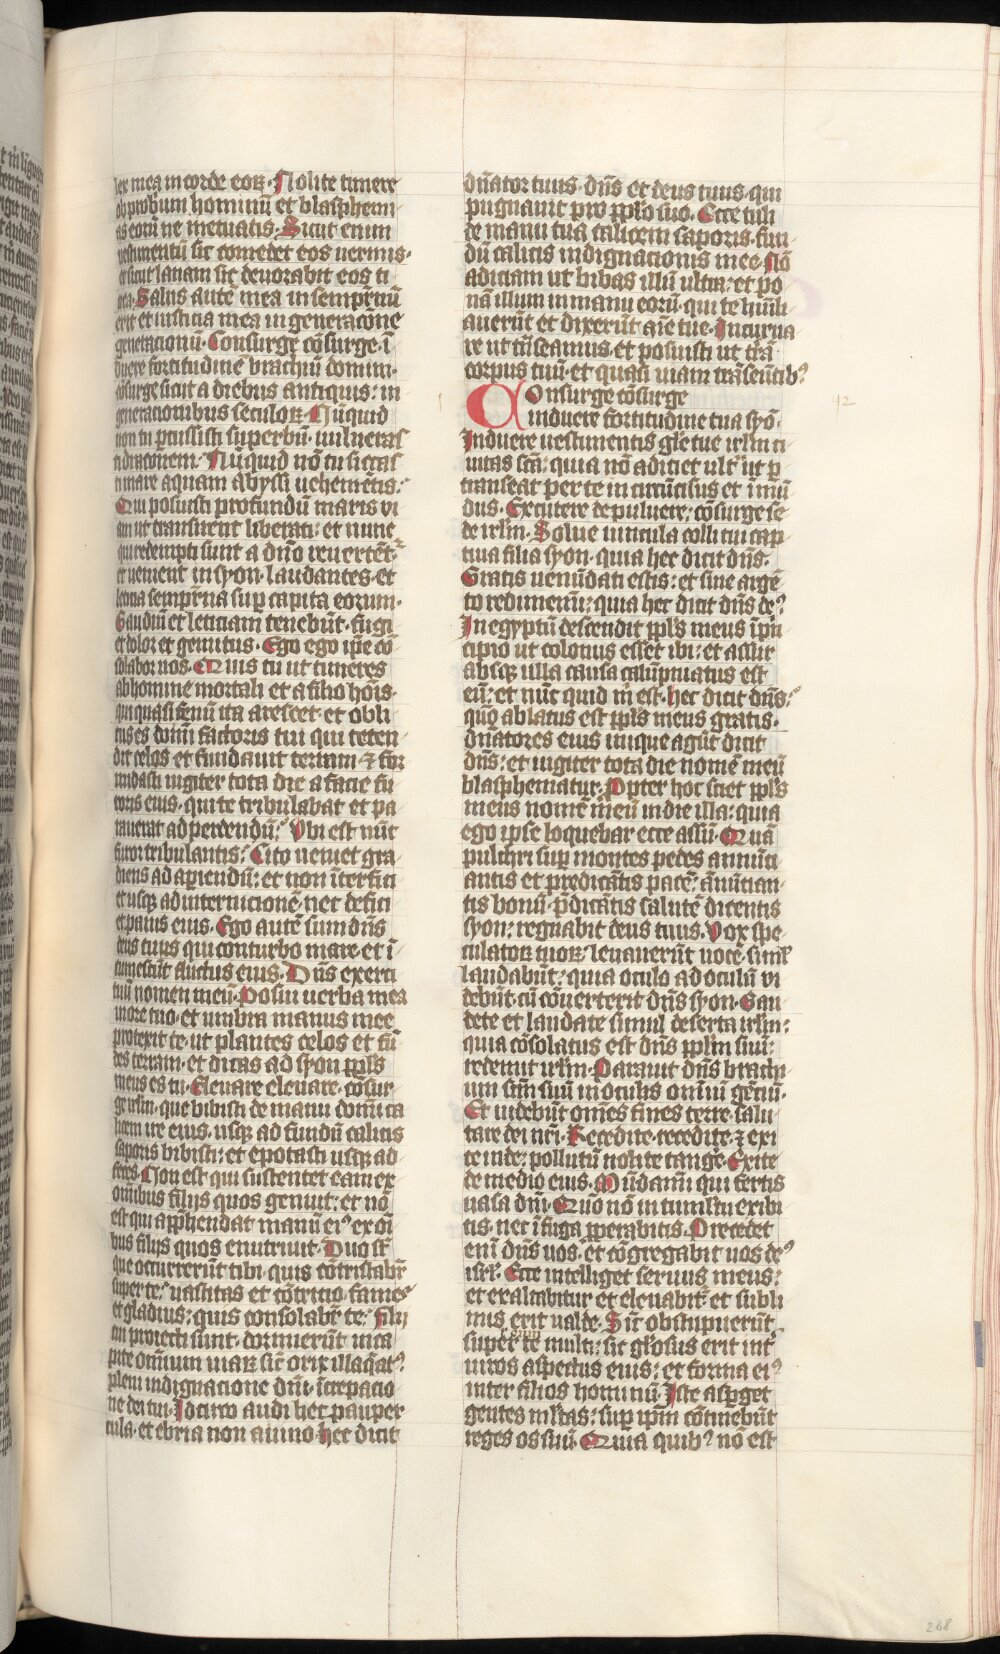 lex mea in corde eoꝝ. Nolite timere
obprobrium hominū et blasphemi
as eorū ne metuatis. Sicut enim
uestimentū sic comedet eos uermis.
et sicut lanam sic deuorabit eos ti
nea. Salus autē mea in semp̄rnū
erit et iusticia mea in generacōne
generacionū. Consurge cōsurge. ī
duere fortitudinē brachiū domini.
cōsurge sicut a diebus antiquis: in
generacionibus seculoꝝ. Nūquid
non tu p̄cussisti superbū. uulnerasˀ
ti draconem. Nūquid nō tu siccasˀ
ti mare aquam abyssi uehemētis.
Qui posuisti profundū maris vi
am ut transirent liberati: et nunc
qui redempti sunt a dn̄o reuertēt.
et uenient in syon. laudantes. et
leticia semp̄rna sup̄ capita eorum.
Gaudiū et leticiam tenebūt. fugi
et dolor et gemitus. Ego ego ip̄e cō
solabor uos. Quis tu ut timeres
ab homine mortali et a filio hōis.
qui quasi fenū ita arescet. et obli
tus es domī factoris tui qui teten
dit celos et fundauit terram ⁊ for
midasti iugiter tota die a facie fu
roris eius. qui te tribulabat et pa
rauerat ad perdendū: Vbi est nūc
furor tribulantis: Cito ueniet gra
diens ad ap̄iendū: et non īterfici
et usqꝫ ad internicionē. nec defici
et panis eius. Ego autē sum dn̄s
deus tuus qui conturbo mare. et ī
tumescūt fluctus eius. Dn̄s exerci
tuū nomen meū. Posui uerba mea
in ore tuo. et umbra manus mee
protexit te. ut plantes celos et fū
des terram. et dicas ad syon pp̄ls
meus es tu. Eleuare eleuare. cōsur
ge irlm̄. que bibisti de manu domī ca
licem ire eius. usqꝫ ad fundū calicis
saporis bibisti: et epotasti usqꝫ ad
feces. Non est qui sustentet eam ex
omibus filijs quos genuit: et nō
est qui app̄hendat manū eiˀ ex oī
bus filijs quos enutriuit. Duo st̄
que occurrerūt tibi. quis cōtristabr̄
super te: uastitas et cōtricio. fames
et gladius: quis consolabr̄ te: Filij
tui proiecti sunt. dormierūt in ca
pite omnium uiaꝝ sic̄ orix illaq̄atˀ.
pleni indignacione dn̄i. īcrepacio
ne dei tui. Idcirco audi hec pauper
cula. et ebria non a uino. hec dicit
dn̄ator tuus. dn̄s et deus tuus. qui
pugnauit pro pp̄lo suo. Ecce tuli
de manu tua calicem saporis. fun
dū calicis indignacionis mee. Nō
adiciam ut bibas illū ultra: et po
nā illum in manu eorū. qui te hūili
auerūt et dixerūt aīe tue. Incurua
re ut trāseamus. et posuisti ut trā
corpus tuū. et quasi uiam trāseūtibˀ.
Consurge cōsurge
induere fortitudine tua syō.
Induere uestimentis gl̄ie tue irlm̄ ci
uitas sc̄ā: quia nō adiciet ult̄ ut p̄
transeat per te in circūcisus et īmū
dus. Excutere de puluere. cōsurge se
de irlm̄. Solue uincula colli tui cap
tiua filia syon. quia hec dicit dn̄s.
Gratis uenūdati estis: et sine argē
to redimemī: quia hec dicit dn̄s deˀ.
In egyptū descendit pp̄ls meus ī pn̄
cipio ut colonus esset ibi: et assur
absqꝫ ulla causa calūpniatus est
eū: et nūc quid m̄ est. hec dicit dn̄s:
qm̄ ablatus est pp̄ls meus gratis.
Dn̄atores eius inique agūt dicit
dn̄s: et iugiter tota die nomē meū
blasphematur. Propter hoc sciet pp̄ls
meus nomē meū in die illa: quia
ego ipse loquebar ecce assū. Quā
pulchri sup̄ montes pedes annūci
antis et predicātis pacē: annūcian
tis bonū. p̄dicātis salutē dicentis
syon: regnabit deus tuus. Vox spe
culatoꝝ tuoꝝ: leuauerūt uocē. simˡ
laudabūt: quia oculo ad oculū vi
debūt. cū cōuerterit dn̄s syon. Gau
dete et laudate simul deserta irlm̄:
quia cōsolatus est dn̄s pp̄lm suū:
redemit irlm̄. Parauit dn̄s brachi
um sc̄m suū in oculis omniū gēciū.
Et uidebūt omēs fines terre. salu
tare dei nr̄i. Recedite. recedite. ⁊ exi
te inde: pollutū nolite tangē. Exite
de medio eius. Mūdamī qui fertis
uasa dn̄i. Qm̄ nō in tumultu exibi
tis. nec ī fuga p̄perabitis. Precedet
enī dn̄s uos. et cōgregabit uos deˀ
isrl̄. Ecce intelliget seruus meus:
et exaltabitur et eleuabit̄ et subli
mis erit ualde. Sic̄ obstupuerūt
super te multi: sic gl̄osus erit int̄
uiros aspectus eius: et forma eiˀ
inter filios hominū. Iste asp̄get
gentes ml̄tas: sup̄ ip̄m cōtinebūt
reges os suū. Quia quibˀ nō est
42
268